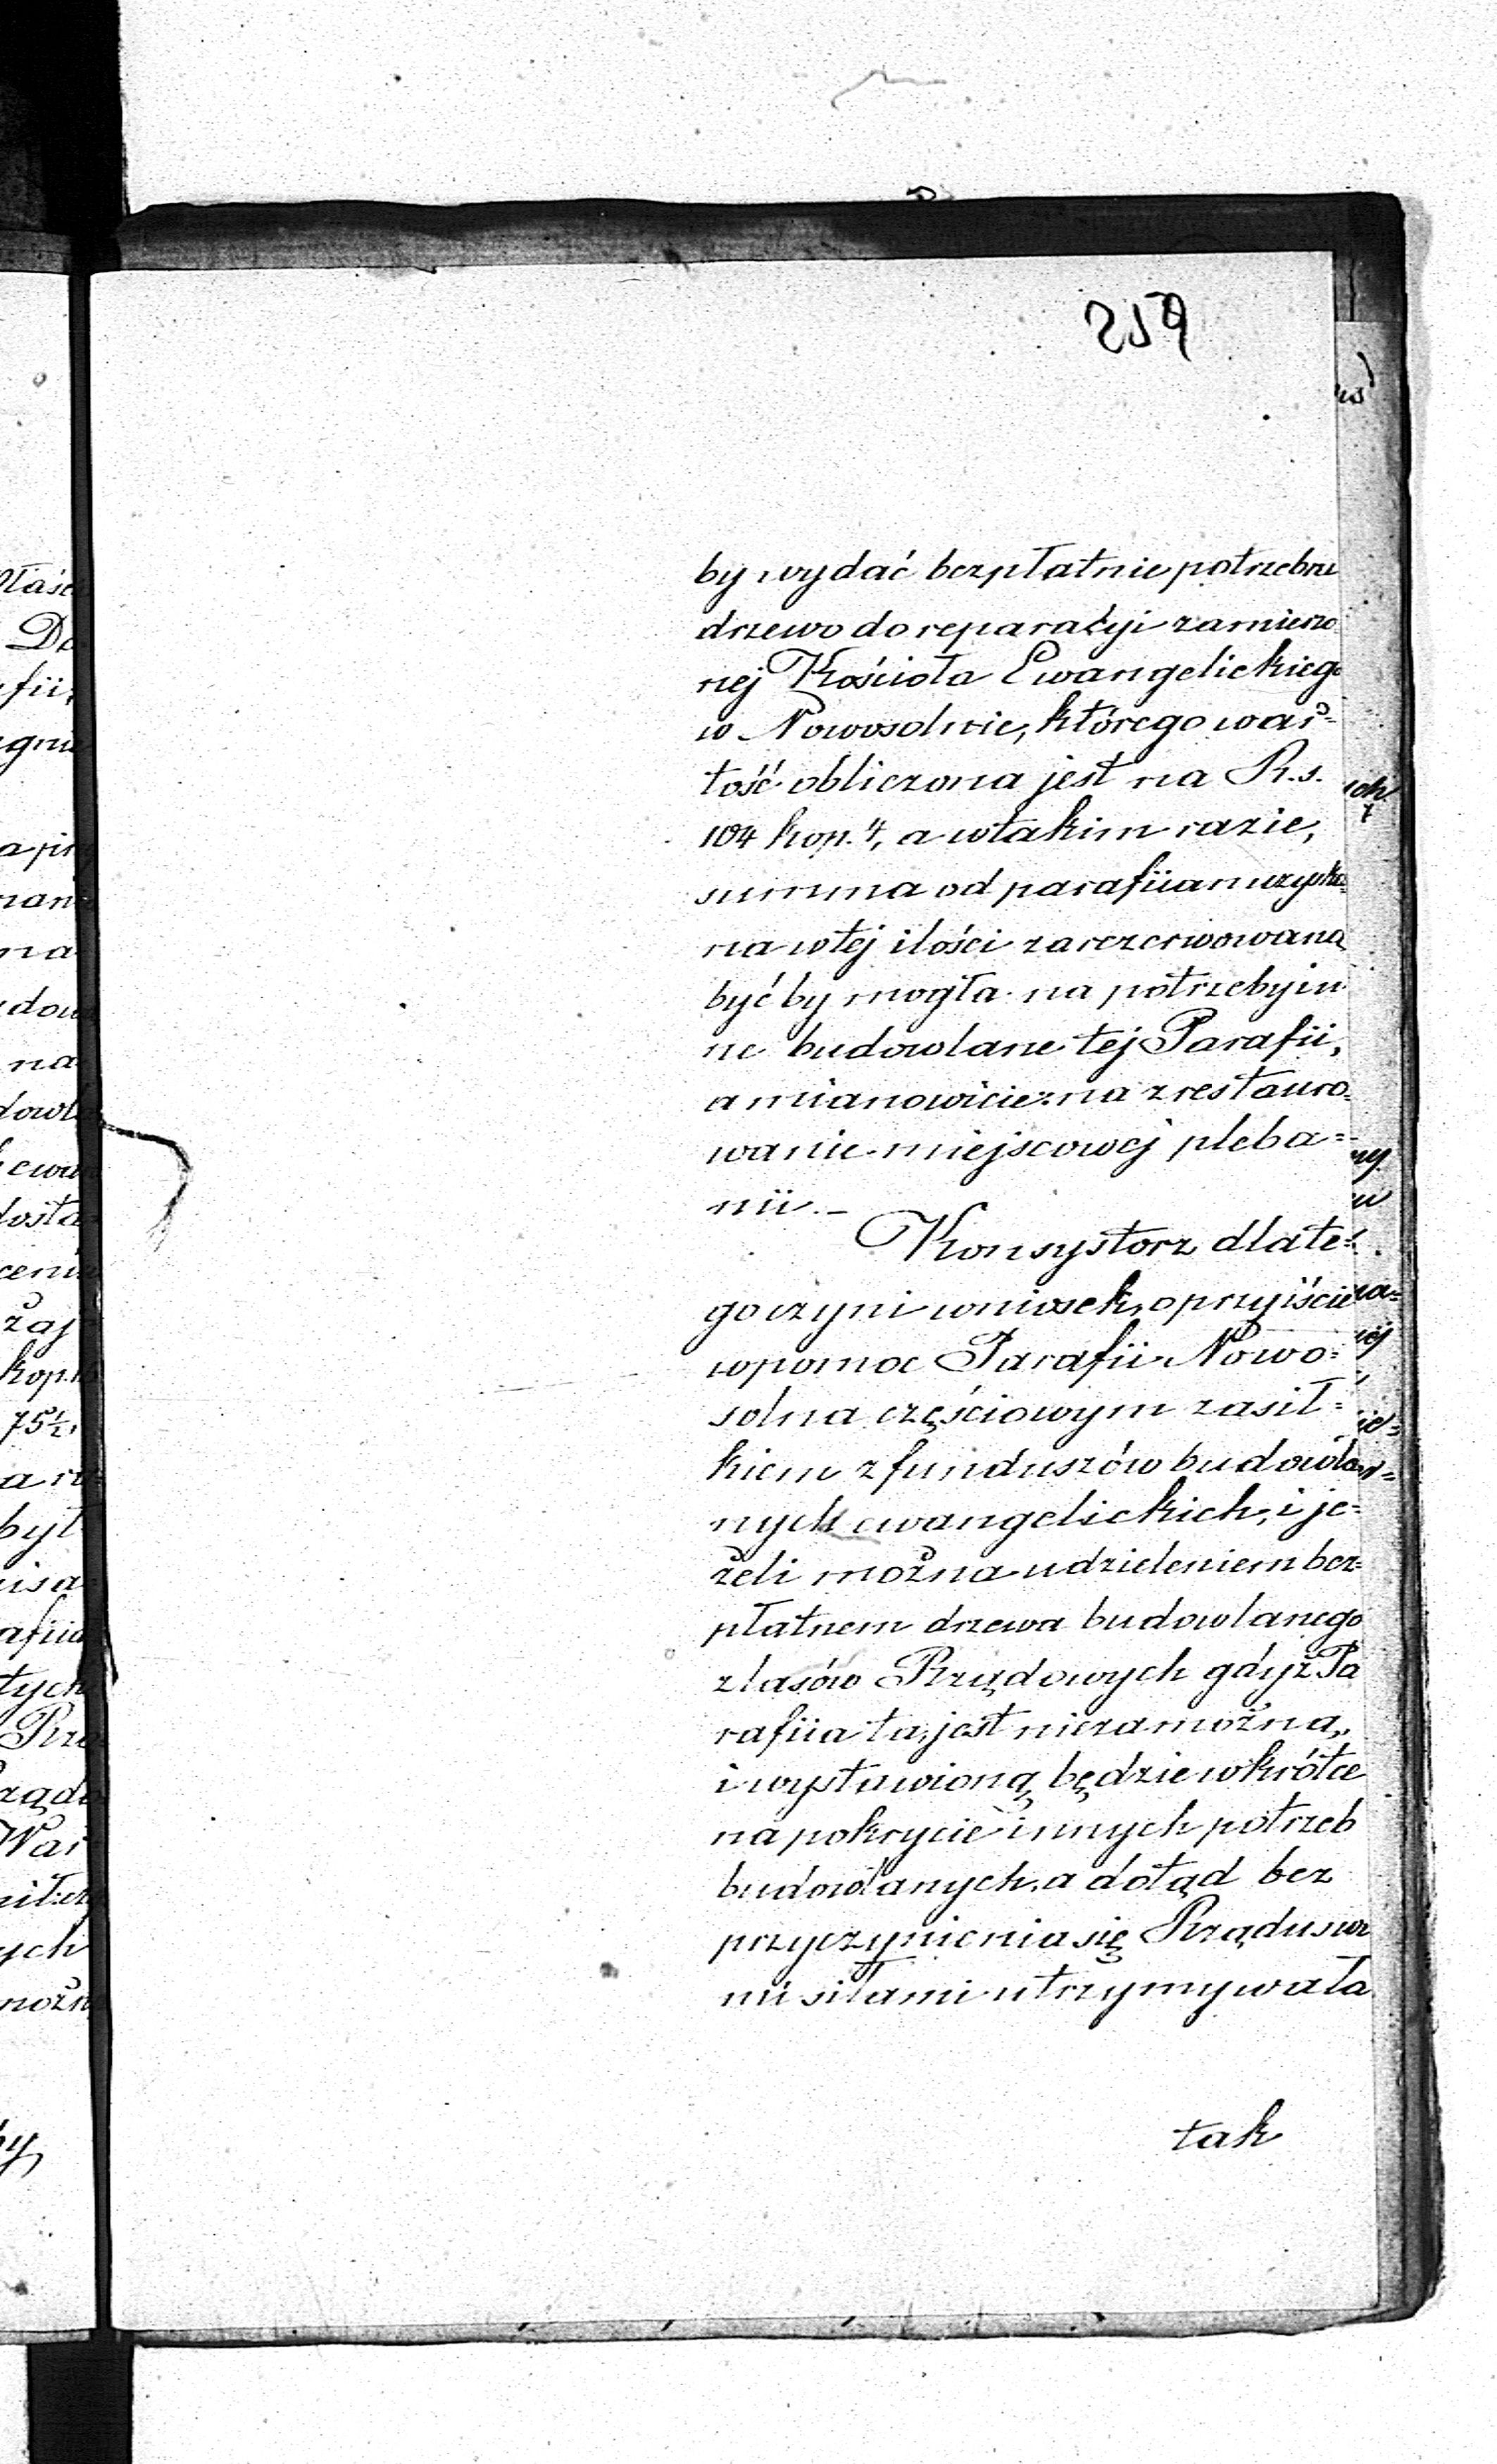 259
by wydać bezpłatnie potrzebne
drzewo do reparacyi zamierzo
nej Kościoła Ewangelickiego
w Nowosolnie, którego war=
tość obliczona jest na R. s.
104 kop. 4, a w takim razie,
summa od parafiian uzyska=
na w tej ilości zarezerwowaną
być by mogła na potrzeby in
ne budowlane tej Parafii,
a mianowicie: na zrestauro=
wanie miejscowej pleba=
nii.—
Konsystorz dlate=
go czyni wniosek, o przyiście
w pomoc Parafii Nowo=
solna częściowym zasił=
kiem z funduszów budowla
nych ewangelickich, i je=
żeli można udzieleniem bez=
płatnem drzewa budowlanego
z lasów Rządowych gdyż Pa
rafiia ta, jest niezamożna,
i wystawioną będzie wkrótce
na pokrycie innych potrzeb
budowlanych, a dotąd bez
przyczynienia się Rządu swe
mi siłami utrzymywała
tak